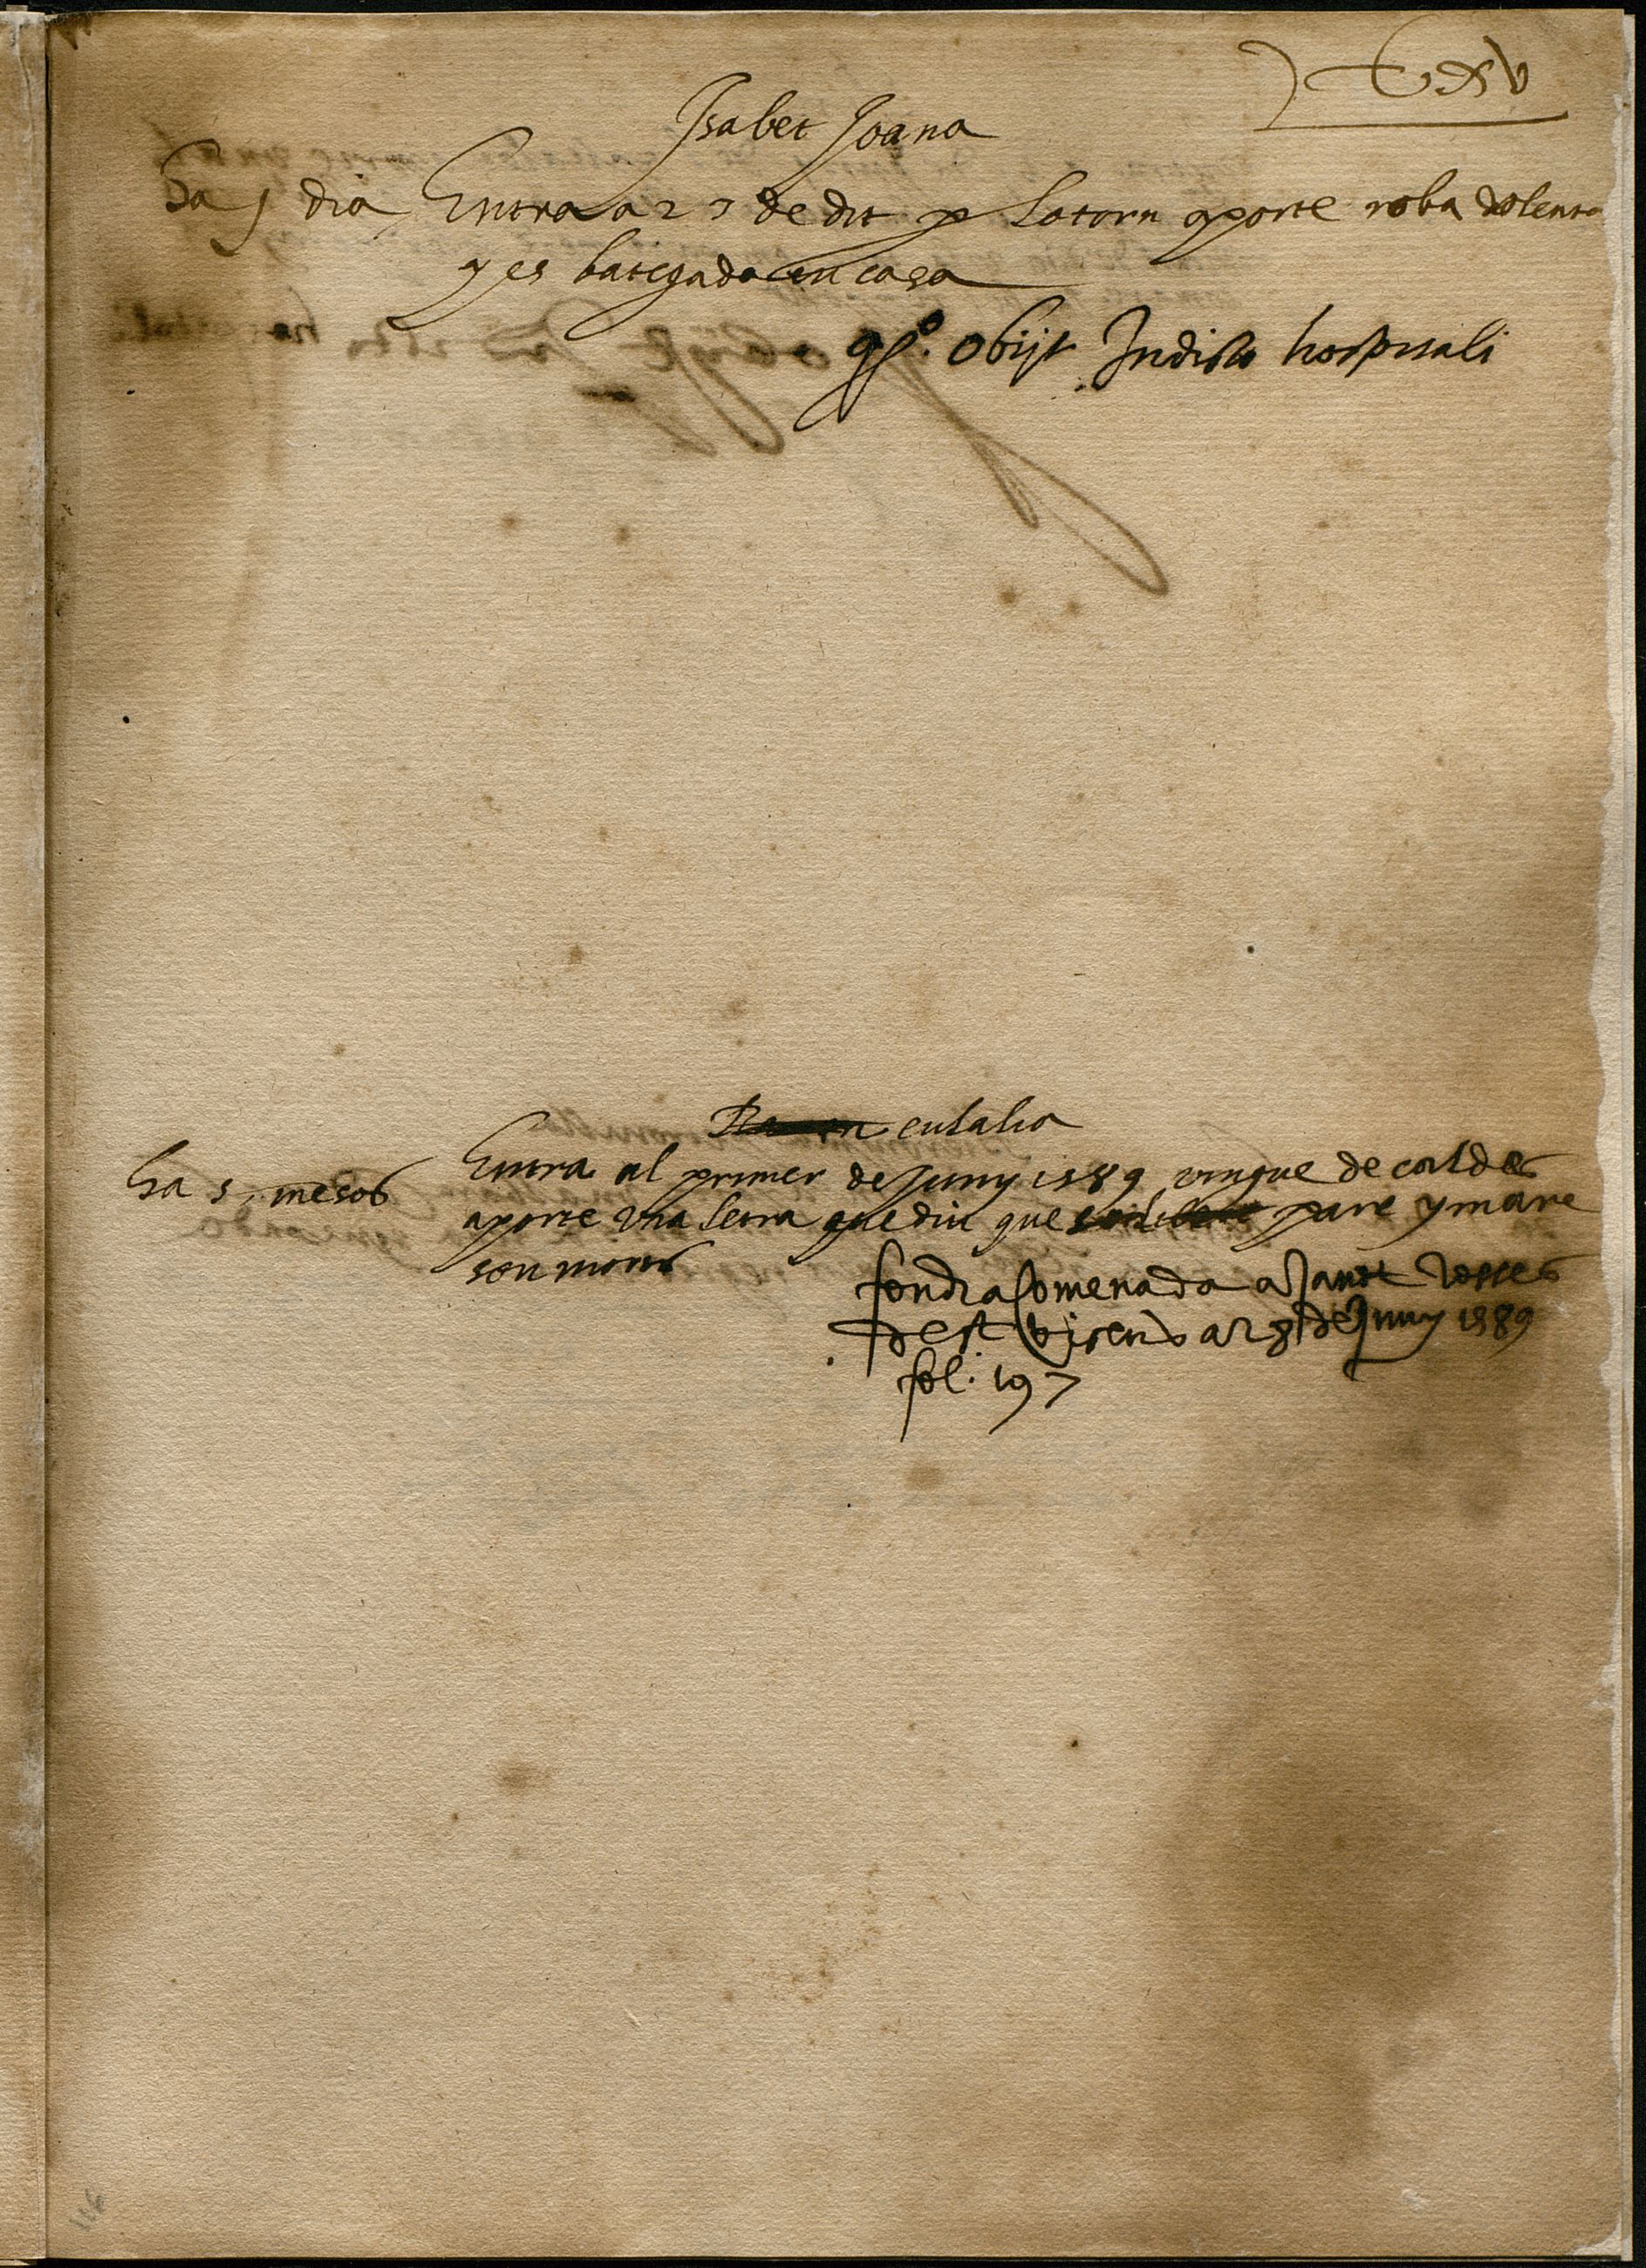 Cxv
Isabet Joana
ha j dia
Entra a 23 de dit p lo torn aporte roba dolenta
y es bategada en casa
obijt In dicto hospitali
eulalia
ha 5 mesos
Entra al primer de Juny 1589 vingue de caldes
aporte vna letra que diu que pare y mare
son morts
fonch acomenada a Janot
dest a 28 de Juny 1589
fol. 197
116